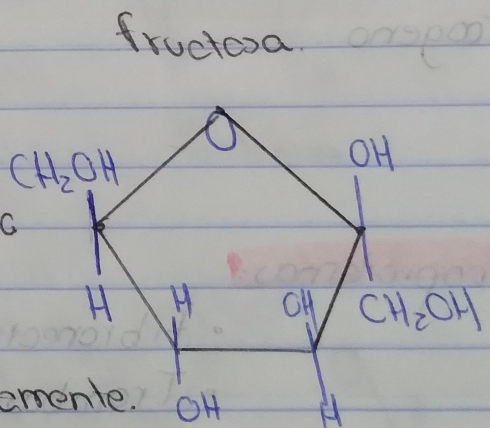 fructosa.
O
CH₂OH OH
a
H H OH CH₂OH
amente. OH H